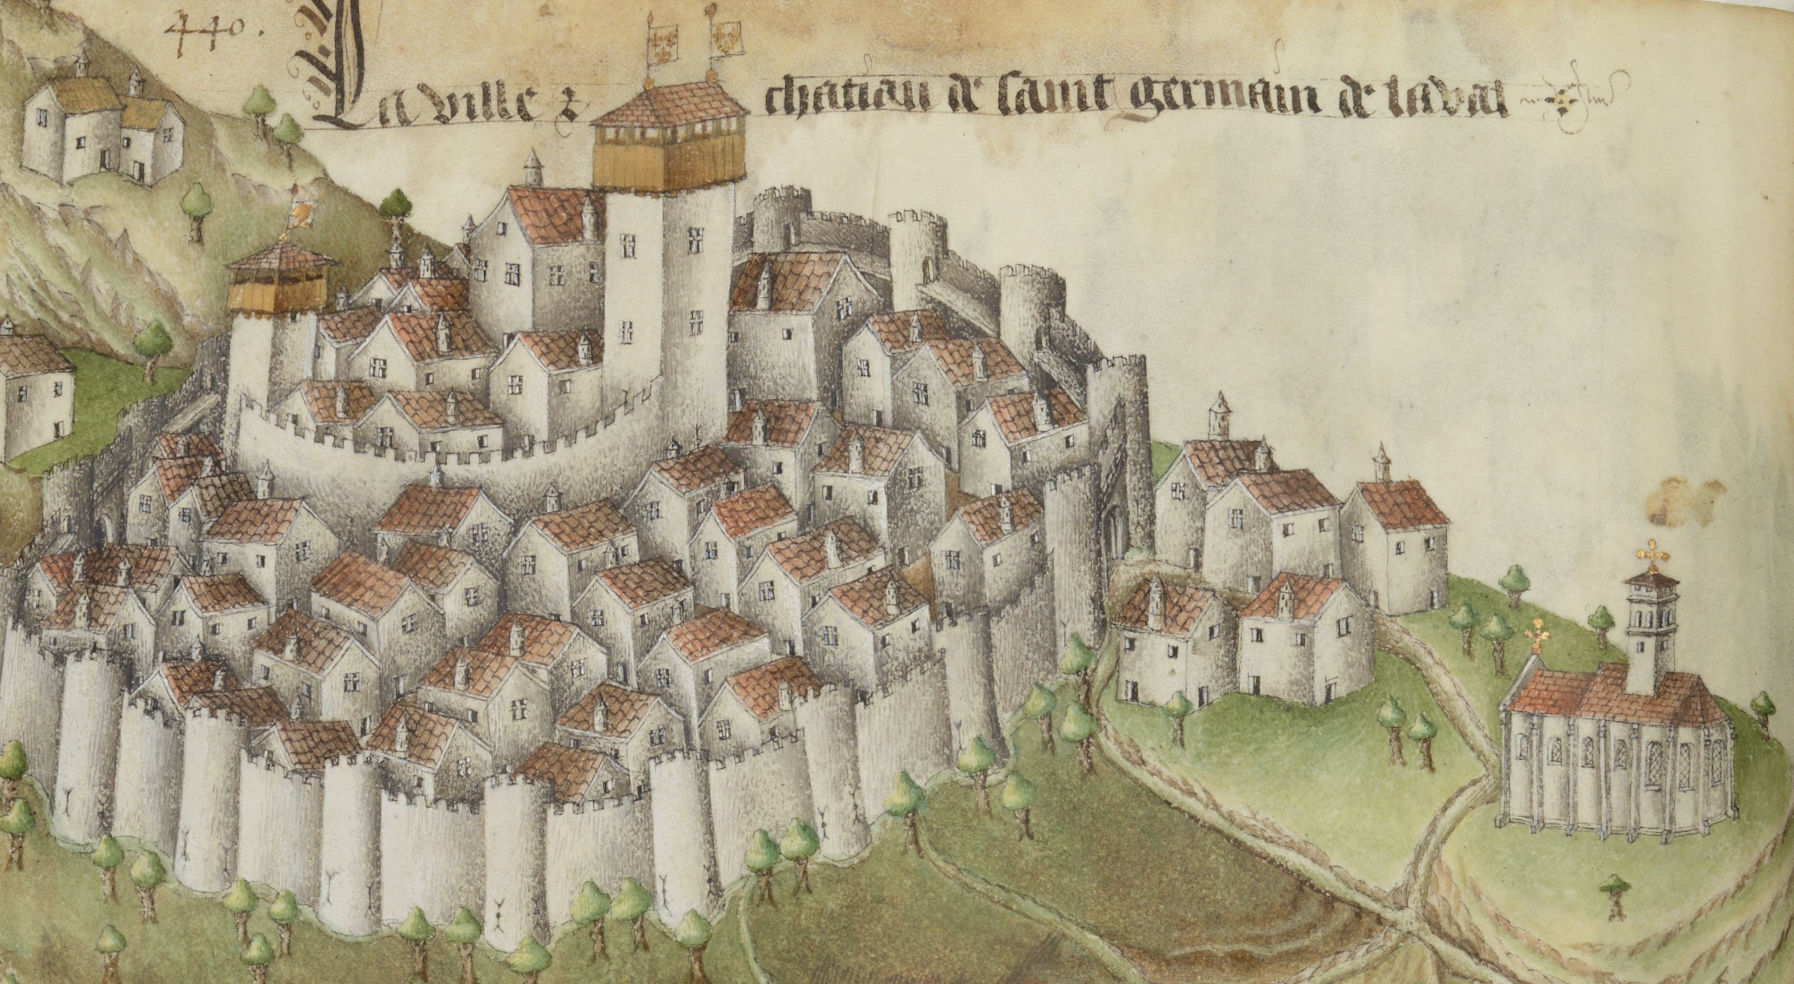 440.
La ville & chatiau de saint germain de laval